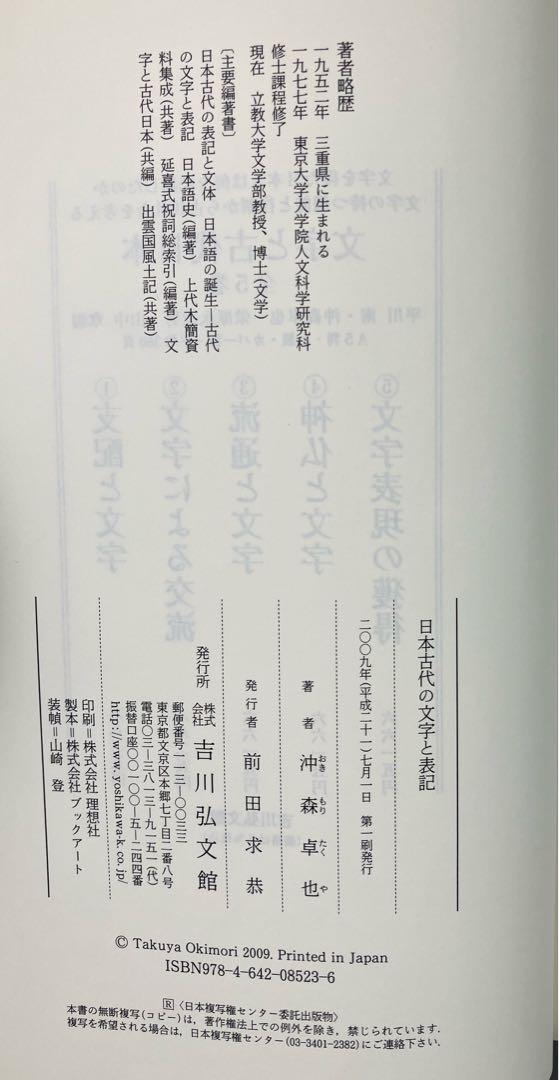 著者略歴
一九五二年　三重県に生まれる
一九七七年　東京大学大学院人文科学研究科
修士課程修了
現在　立教大学文学部教授、博士(文学)
〔主要編著書〕
日本古代の表記と文体　日本語の誕生―古代
の文字と表記　日本語史(編著)　上代木簡資
料集成(共著)　延喜式祝詞総索引(編著)　文
字と古代日本(共編)　出雲国風土記(共著)
日本古代の文字と表記
二〇〇九年(平成二十一)七月一日　第一刷発行
著者　沖森卓也
おき もり たく や
発行者　前田求恭
発行所　株式会社　吉川弘文館
郵便番号一一三―〇〇三三
東京都文京区本郷七丁目二番八号
電話〇三―三八一三―九一五一(代)
振替口座〇〇一〇〇―五―二四四番
http://www.yoshikawa-k.co.jp/
印刷＝株式会社 理想社
製本＝株式会社 ブックアート
装幀＝山崎 登
© Takuya Okimori 2009. Printed in Japan
ISBN978-4-642-08523-6
R〈日本複写権センター委託出版物〉
本書の無断複写(コピー)は，著作権法上での例外を除き，禁じられています．
複写を希望される場合は，日本複写権センター(03-3401-2382)にご連絡下さい．
⑤文字表現の獲得
④神仏と文字
③流通と文字
②文字による交流
①支配と文字